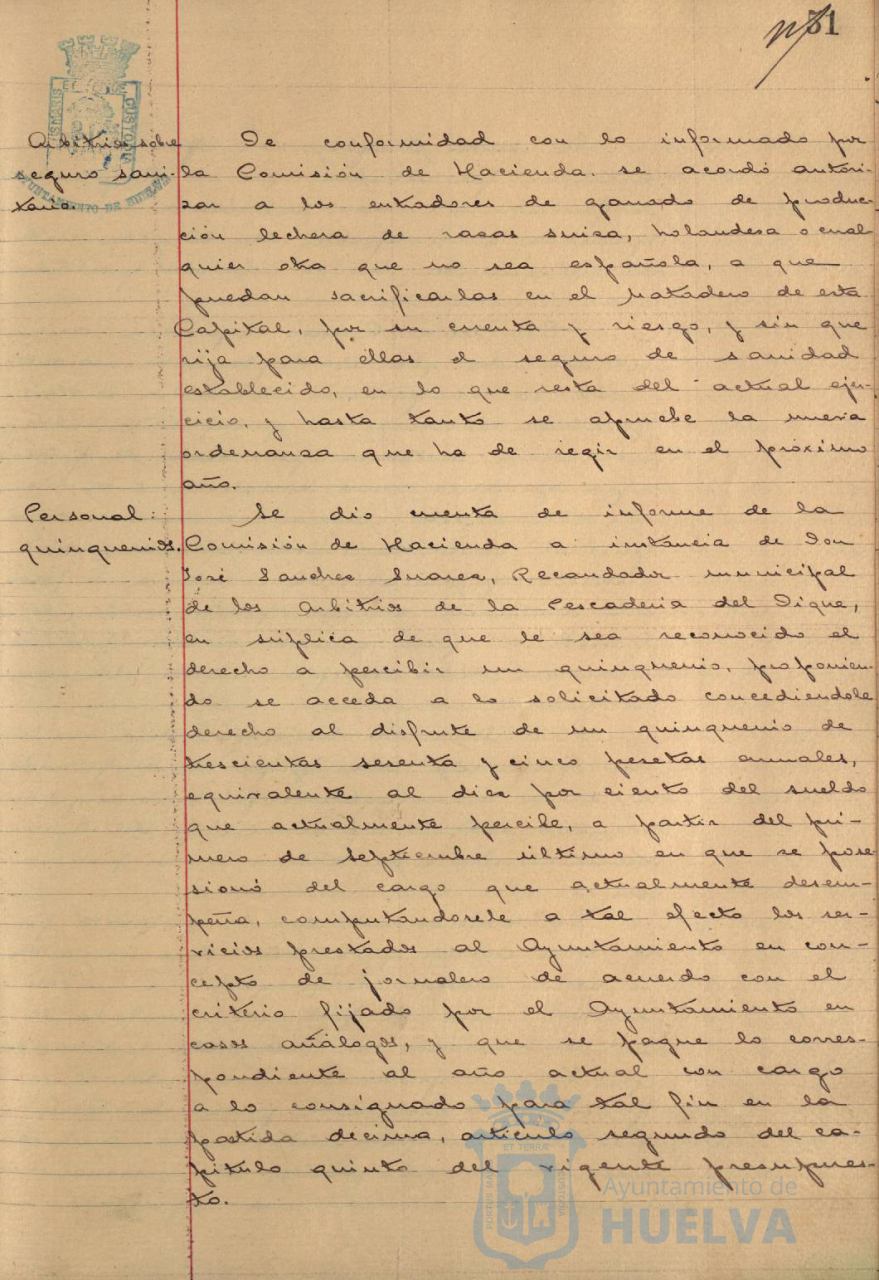 51
Arbitrios sobre
seguro sani-
tario.
De conformidad con lo informado por
la Comisión de Hacienda. se acordó autori-
zar a los entradores de ganado de produc-
ción lechera de razas suiza, holandesa o cual
quier otra que no sea española, a que
puedan sacrificarlas en el Matadero de esta
Capital, por su cuenta y riesgo, y sin que
rija para ellas el seguro de sanidad
establecido, en lo que resta del actual ejer-
cicio, y hasta tanto se apruebe la nueva
ordenanza que ha de regir en el próximo
año.
Personal:
quinquenios.
Se dio cuenta de informe de la
Comisión de Hacienda a instancia de Don
José Sanchez Suarez, Recaudador municipal
de los Arbitrios de la Pescaderia del Dique,
en súplica de que le sea reconocido el
derecho a percibir un quinquenio, proponien-
do se acceda a lo solicitado concediendole
derecho al disfrute de un quinquenio de
trescientas sesenta y cinco pesetas anuales,
equivalente al diez por ciento del sueldo
que actualmente percibe, a partir del pri-
mero de Septiembre último en que se pose-
sionó del cargo que actualmente desem-
peña, computándosele a tal efecto los ser-
vicios prestados al Ayuntamiento en con-
cepto de jornalero de acuerdo con el
criterio fijado por el Ayuntamiento en
casos análogos, y que se pague lo corres-
pondiente al año actual con cargo
a lo consignado para tal fin en la
partida decima, artículo segundo del ca-
pitulo quinto del vigente presupues-
to.
AYUNTAMIENTO DE HUELVA
Ayuntamiento de
HUELVA